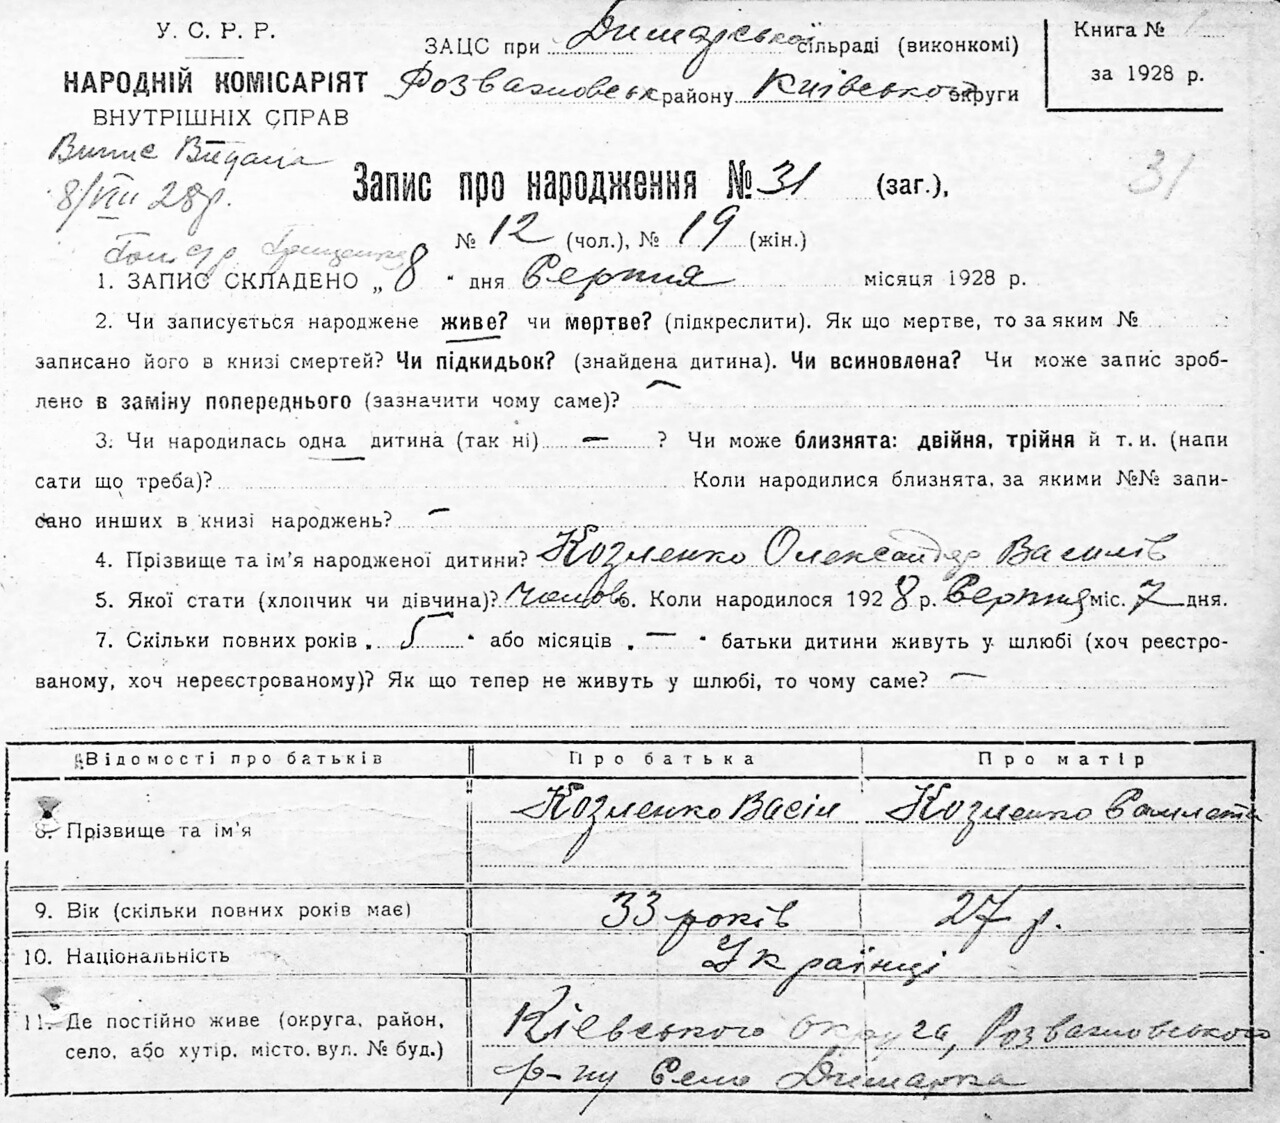 У. С. Р. Р.
НАРОДНІЙ КОМІСАРІЯТ
ВНУТРІШНІХ СПРАВ
ЗАЦС при Димарській сільраді (виконкомі)
Розважновськ району Київського округи
Книга №
за 1928 р.
Випис Видана
8/VIII 28 р.
31
Запис про народження № 31 (заг.),
№ 12 (чол.), № 19 (жін.)
1. ЗАПИС СКЛАДЕНО „ 8 " дня Серпня місяця 1928 р.
2. Чи записується народжене живе? чи мертве? (підкреслити). Як що мертве, то за яким №
записано його в книзі смертей? Чи підкидьок? (знайдена дитина). Чи всиновлена? Чи може запис зроб-
лено в заміну попереднього (зазначити чому саме)? —
3. Чи народилась одна дитина (так ні) — ? Чи може близнята: двійня, трійня й т. и. (напи
сати що треба)? Коли народилися близнята, за якими №№ запи-
сано инших в книзі народжень? —
4. Прізвище та ім'я народженої дитини? Козленко Олександр Василів
5. Якої стати (хлопчик чи дівчина)? Чолов. Коли народилося 1928 р. Серпня міс. 7 дня.
7. Скільки повних років „ 5 " або місяців „ — " батьки дитини живуть у шлюбі (хоч реєстро-
ваному, хоч нереєстрованому)? Як що тепер не живуть у шлюбі, то чому саме? —
Відомості про батьків Про батька Про матір
8. Прізвище та ім'я Козленко Васіл Козленко
9. Вік (скільки повних років має) 33 років 27 р.
10. Національність Українці
11. Де постійно живе (округа, район,
село, або хутір, місто, вул. № буд.)
Київського округа, Розважновського
р-ну Село Димарка